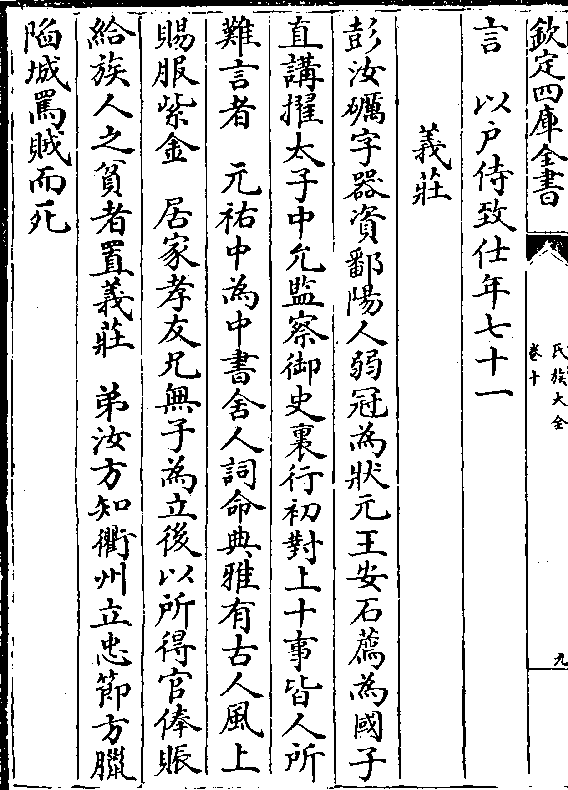 欽定四庫全書
氏族大全
卷十
九
言　以户侍致仕年七十一
義莊
彭汝礪字器資鄱陽人弱冠為狀元王安石薦為國子
直講擢太子中允監察御史裏行初對上十事皆人所
難言者　元祐中為中書舍人詞命典雅有古人風上
賜服紫金　居家孝友兄無子為立後以所得官俸賑
給族人之貧者置義莊　弟汝方知衢州立忠節方臘
陷城罵賊而死